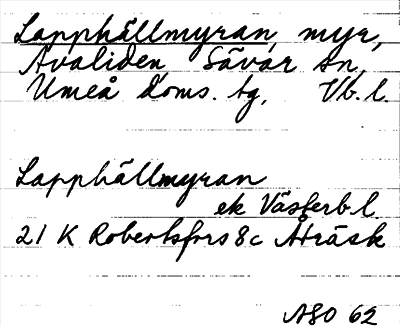 Lapphällmyran, myr,
Avaliden Sävar sn,
Umeå doms. tg, Vb. l.
Lapphällmyran
ek Västerb. l.
21 K Robertsfors 8c Åträsk
ASO 62